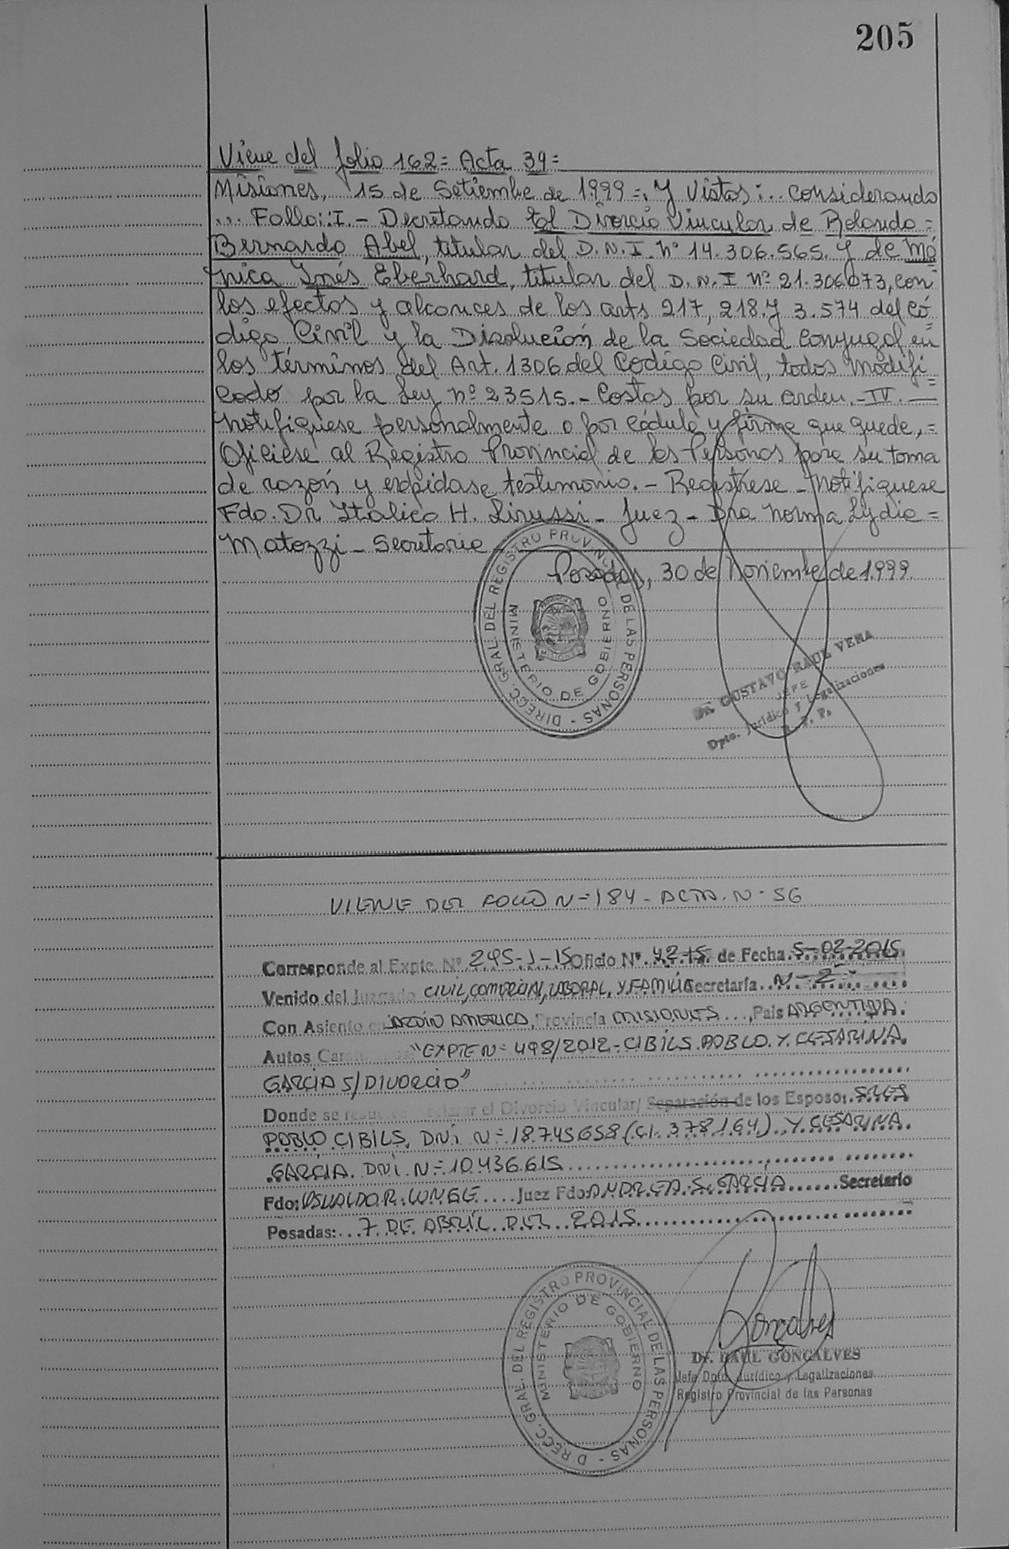 205
Viene del folio 162= Acta 39=
Misiones, 15 de Setiembre de 1999=, Y Vistos:.. Considerando
... Fallo: I.- Decretando El Divorcio Vincular de Rolando=
Bernardo Abel, titular del D.N.I. Nº 14.306.565. Y de Mó=
nica Inés Eberhard, titular del D.N.I Nº 21.306.073, con
los efectos y alcances de los arts 217, 218 y 3.574 del Có=
digo Civil y la Disolución de la Sociedad Conyugal en
los términos del Art. 1306 del Código Civil, todos modifi=
cado por la Ley nº 23515.- Costas por su orden.- IV.-
Notifiquese personalmente o por cédula y firme que quede,=
Ofíciese al Registro Provincial de las Personas para su toma
de razón y expídase testimonio.- Regístrese - Notifiquese
Fdo. Dr Italico H. Linussi - Juez - Dra Norma Lydia=
Matozzi - Secretaria
Posadas, 30 de Noviembre de 1.999.
DIRECC. GRAL. DEL REGISTRO PROVINCIAL DE LAS PERSONAS
MINISTERIO DE GOBIERNO
Dr. GUSTAVO RAUL VERA
JEFE
Dpto. Jurídico y Legalizaciones
R. P. P.
VIENE DEL FOLIO N=184- ACTA. N- 56
Corresponde al Expte. Nº 295-J-15 Oficio Nº. 42-15. de Fecha 5-02-2015
Venido del Juzgado CIVIL, COMERCIAL, LABORAL, Y FAMILIA Secretaría N-2-
Con Asiento en JARDIN AMERICA, Provincia MISIONES..., Pais ARGENTINA.
Autos "EXPTE N= 498/2012- CIBILS PABLO Y CESARINA
GARCIA S/DIVORCIO"
Donde se el Divorcio Vincular/ Separación de los Esposos
PABLO CIBILS, DNI. N=18.745658 (CI. 378.164). Y CESARINA.
GARCIA. DNI. N=10.436.615
Fdo: OSVALDO R. LUNGE.... Juez Fdo: ANDREA. S. GARCIA...... Secretario
Posadas:... 7 DE ABRIL DEL 2015
DIRECC. GRAL. DEL REGISTRO PROVINCIAL DE LAS PERSONAS
MINISTERIO DE GOBIERNO
Gonçalves
Dr. RAUL GONCALVES
Jefe Dpto. Jurídico y Legalizaciones
Registro Provincial de las Personas